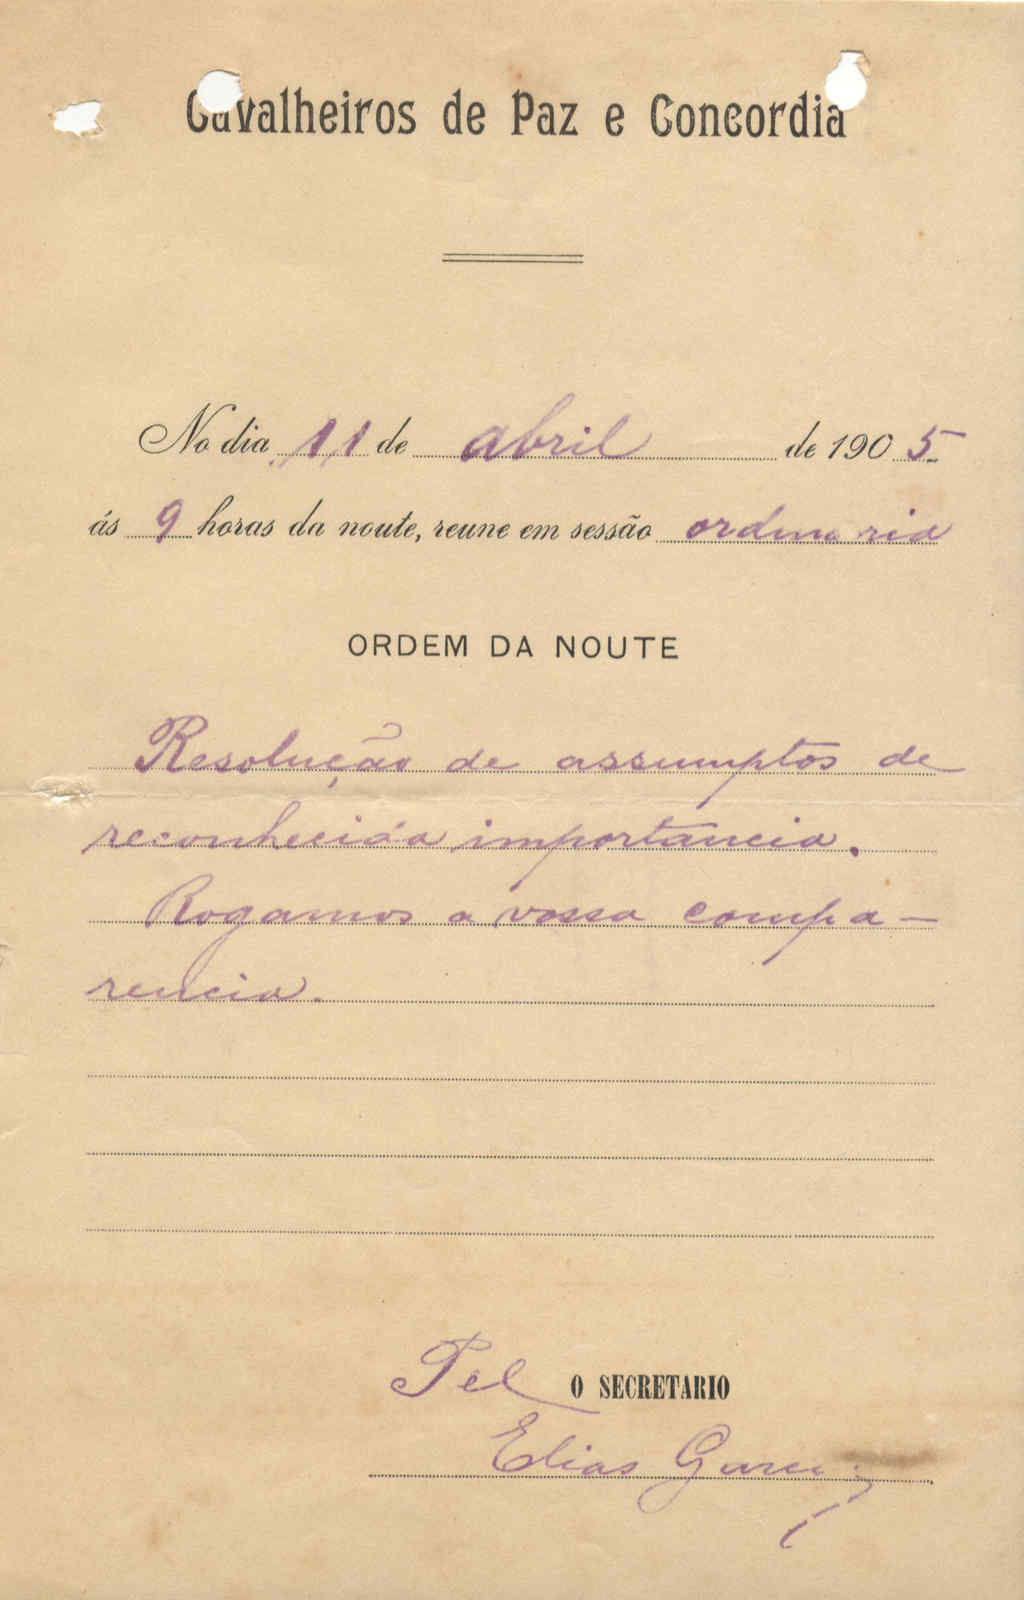 Cavalheiros de Paz e Concordia
No dia 11 de abril de 1905
ás 9 horas da noute, reune em sessão ordinaria
ORDEM DA NOUTE
Resolução de assumptos de
reconhecida importancia.
Rogamos a vossa compa-
rencia.
Pel O SECRETARIO
Elias Garcia